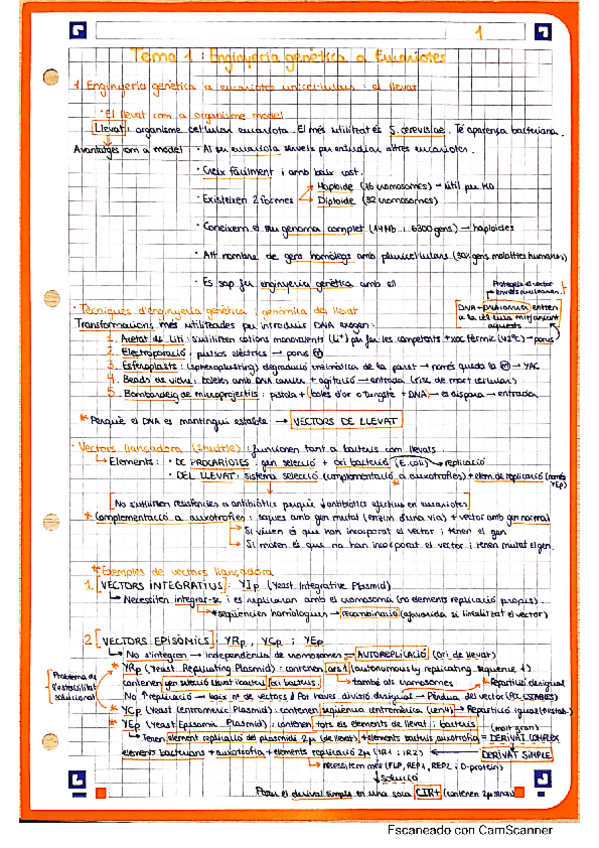 1
Tema 1: Enginyeria genètica a Eucariotes
1. Enginyeria genètica a eucariotes unicel·lulars: el llevat
· El llevat com a organisme model
Llevat: organisme cel·lular eucariota. El més utilitzat és S. cerevisiae. Té aparença bacteriana.
Avantatges com a model: · Al ser eucariota serveix per estudiar altres eucariotes.
· Creix fàcilment i amb baix cost.
· Existeixen 2 formes Haploide (16 cromosomes) → útil per KO
Diploide (32 cromosomes)
· Coneixem el seu genoma complet (14Mb i 6300 gens) → haploides
· Alt nombre de gens homòlegs amb pluricel·lulars (30% gens malalties humanes)
· Es sap fer enginyeria genètica amb ell
Protegeix el vector
DNA + entren
a la cèl·lula mitjançant
aquests
· Tècniques d'enginyeria genètica i genòmica del llevat
Transformacions més utilitzades per introduir DNA exogen:
1. Acetat de Liti: S'utilitzen cations monovalents (Li⁺) per fer les competents + xoc tèrmic (42ºC) → porus
2. Electroporació: pulsos elèctrics → porus
3. Esferoplasts: (spheroplasting) degradació enzimàtica de la paret → només queda la → YAC
4. Beads de vidre: boletes amb DNA + agitació → entrada (risc de mort cel·lular)
5. Bombardeig de microprojectils: pistola + (boles d'or o tungstè + DNA) → es dispara → entrada
* Perquè el DNA es mantingui estable → VECTORS DE LLEVAT
· Vectors llançadora (shuttle): funcionen tant a bacteris com llevats.
↳ Elements: · DE PROCARIOTES: gen selecció + ori bacterià (E. coli) → replicació
· DEL LLEVAT: sistema selecció (complementació a auxotròfies) + elem. de replicació (només YEp)
No s'utilitzen resistències a antibiòtics perquè antibiòtics efectius en eucariotes
* Complementació a auxotròfies: soques amb gen mutat (enzim d'una via) + vector amb gen normal
Si viuen és que han incorporat el vector i tenen el gen
Si moren és que no han incorporat el vector i tenen mutat el gen.
* Exemples de vectors llançadora
1. VECTORS INTEGRATIUS: YIp (Yeast Integrative Plasmid)
↳ Necessiten integrar-se i es repliquen amb el cromosoma (no elements replicació propis).
↳ * seqüències homòlogues → recombinació (afavorida si linealitzat el vector)
2. VECTORS EPISÒMICS: YRp, YCp i YEp
↳ No s'integren → independència de cromosomes = AUTOREPLICACIÓ (ori de llevat)
* YRp (Yeast Replicating Plasmid): contenen ars1 (autonomously replicating sequence 1)
contenen gen selecció llevat i bacteri, ori bacteris. ↳ també als cromosomes * Repartició desigual
No replicació → baix nº de vectors / Pot haver divisió desigual → Pèrdua del vector
* YCp (Yeast Centromeric Plasmid): contenen seqüència centromèrica (cen4) → Repartició igual
* YEp (Yeast Episomic Plasmid): contenen tots els elements de llevat i bacteris (molt gran)
↳ Tenen element replicació del plasmidi 2µ (de llevat) + elements bacteris, auxotròfia = DERIVAT COMPLEX
elements bacterians + auxotròfia + elements replicació 2µ (IR1 i IR2) ← DERIVAT SIMPLE
↳ necessiten més (FLP, REP1, REP2 i D-protein)
↓ solució
Posar el derivat simple en una soca CIR+
Problema de
Escaneado con CamScanner